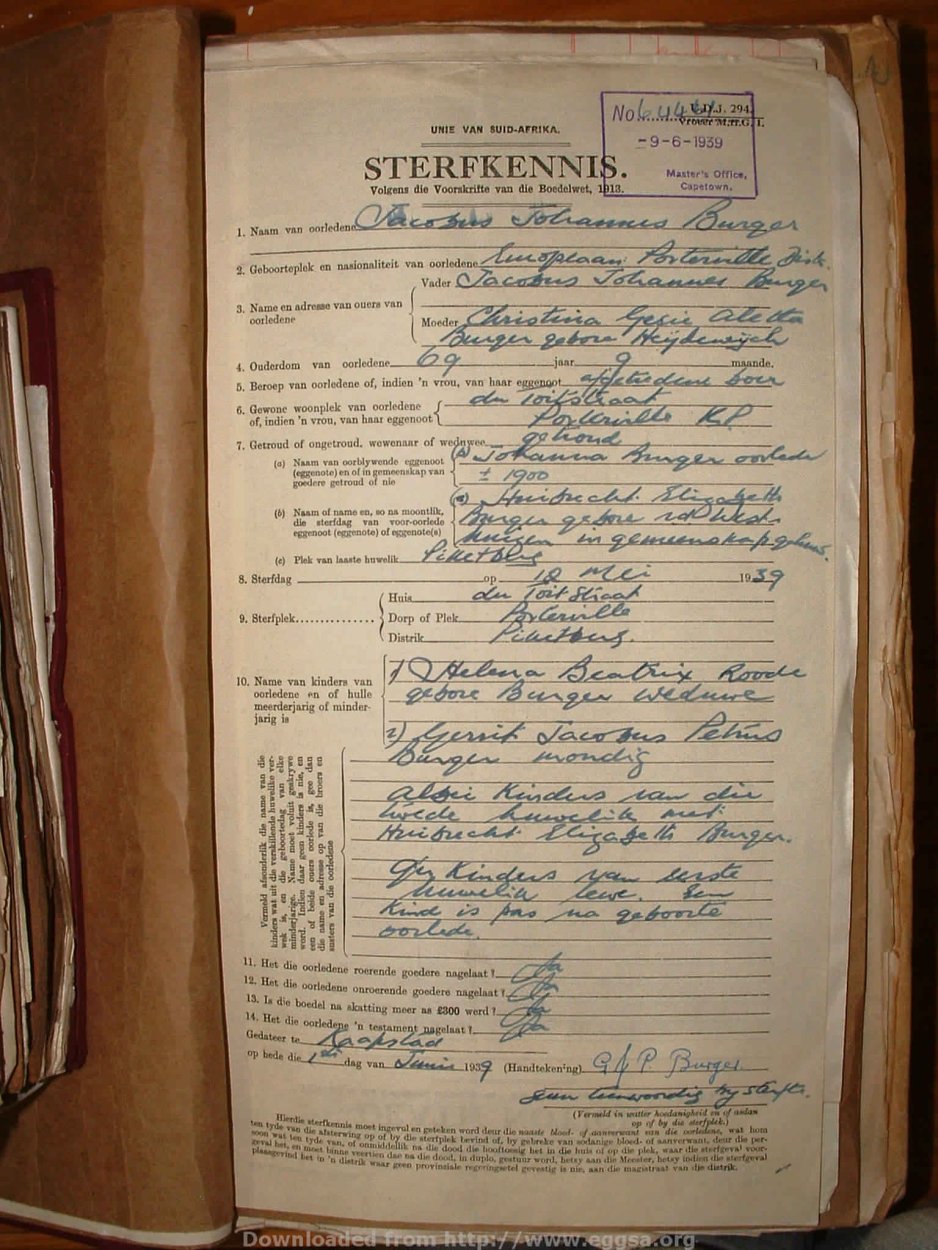 U.D.J. 294.
Vroeër M.H.G. 1.
No 6
-9-6-1939
Master's Office,
Capetown.
UNIE VAN SUID-AFRIKA.
STERFKENNIS.
Volgens die Voorskrifte van die Boedelwet, 1913.
1. Naam van oorledene Jacobus Johannes Burger
2. Geboorteplek en nasionaliteit van oorledene Europeaan Porterville Dist.
3. Name en adresse van ouers van oorledene
Vader Jacobus Johannes Burger
Moeder Christina Gesie Aletta
Burger gebore
4. Ouderdom van oorledene 69 jaar 9 maande.
5. Beroep van oorledene of, indien 'n vrou, van haar eggenoot afgetredene boer
6. Gewone woonplek van oorledene of, indien 'n vrou, van haar eggenoot
du Toitstraat
Porterville K.P.
7. Getroud of ongetroud, wewenaar of weduwee getroud
(a) Naam van oorblywende eggenoot (eggenote) en of in gemeenskap van goedere getroud of nie
(b) Johanna Burger oorlede
± 1900
(b) Naam of name en, so na moontlik, die sterfdag van voor-oorlede eggenoot (eggenote) of eggenote(s)
(a) Huibrecht Elizabeth
Burger gebore v d West-
huizen in gemeenskap
(c) Plek van laaste huwelik Piketberg
8. Sterfdag op 18 Mei 1939
9. Sterfplek
Huis du Toit Straat
Dorp of Plek Porterville
Distrik Piketberg.
10. Name van kinders van oorledene en of hulle meerderjarig of minderjarig is
1) Helena Beatrix Roode
gebore Burger weduwe
2) Gerrit Jacobus Petrus
Burger mondig
Vermeld afsonderlik die name van die
kinders wat uit die verskillende huwelike verwek is, en die geboortedag van elke
minderjarige. Name moet voluit geskrywe
word. Indien daar geen kinders is nie, en
een of beide ouers oorlede is, gee dan
die name en adresse op van die broers en
susters van die oorledene
Albei Kinders van die
twede huwelik met
Huibrecht Elizabeth Burger.
Gen Kinders van eerste
huwelik lewe. Een
Kind is pas na geboorte
oorlede.
11. Het die oorledene roerende goedere nagelaat? Ja
12. Het die oorledene onroerende goedere nagelaat? Ja
13. Is die boedel na skatting meer as £300 werd? Ja
14. Het die oorledene 'n testament nagelaat? Ja
Gedateer te Kaapstad
op hede die 1ste dag van Junie 1939 (Handtekening) G J P Burger
Seun teenwoordig by sterfte.
(Vermeld in watter hoedanigheid en of aldan
op of by die sterfplek.)
Hierdie sterfkennis moet ingevul en geteken word deur die naaste bloed- of aanverwant van die oorledene, wat hom
ten tyde van die afsterwing op of by die sterfplek bevind of, by gebreke van sodanige bloed- of aanverwant, deur die persoon wat ten tyde van, of onmiddellik na die dood die hooftoesig het in die huis of op die plek, waar die sterfgeval voorgeval het, en moet binne veertien dae na die dood, in duplo, gestuur word, hetsy aan die Meester, hetsy indien die sterfgeval
plaasgevind het in 'n distrik waar geen provinsiale regeringsetel gevestig is nie, aan die magistraat van die distrik.
Downloaded from http://www.eggsa.org